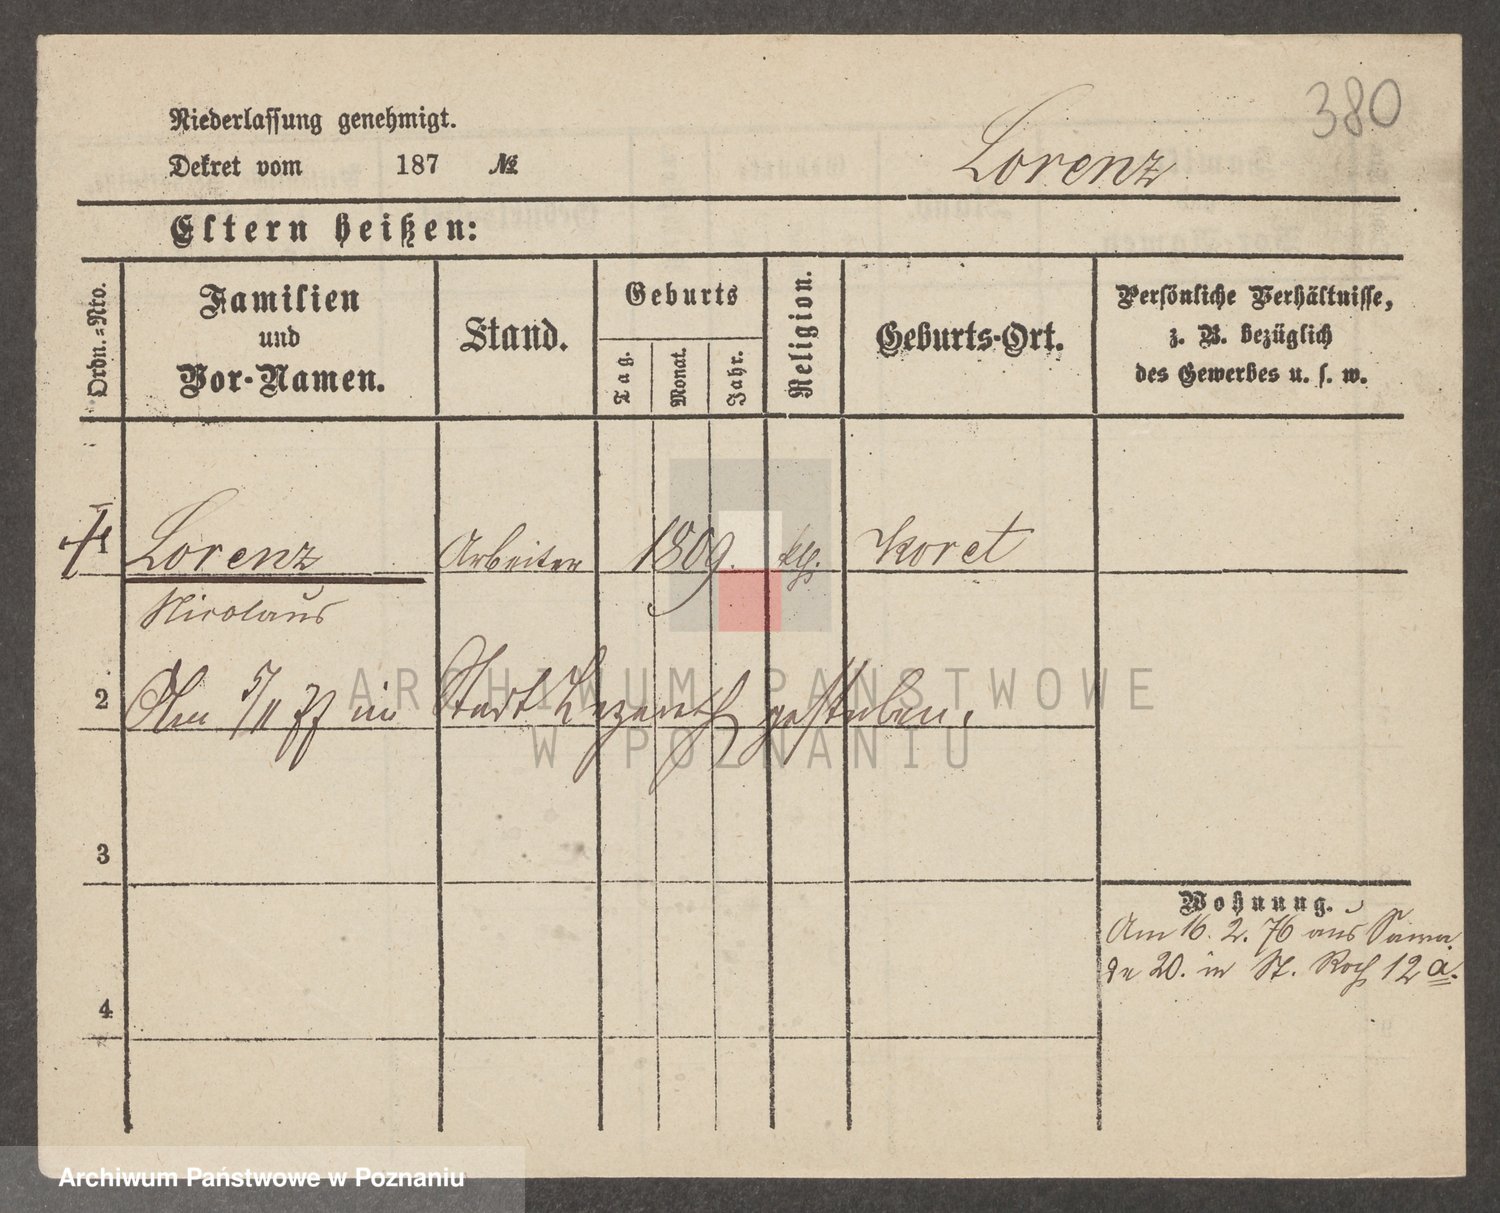 380
Niederlassung genehmigt.
Dekret vom 187 №
Lorenz
Eltern heißen:
Ordn.-Nro.
Familien
und
Vor-Namen.
Stand.
Geburts
Tag.
Monat.
Jahr.
Religion.
Geburts-Ort.
Persönliche Verhältnisse,
z. B. bezüglich
des Gewerbes u. s. w.
1 Lorenz Arbeiter 1809. kth. Koret
Nicolaus
2 Am 5/11 77 in Stadt Lazareth gestorben.
3
4
Wohnung.
Am 16. 2. 76 aus Sawa
de 20. in St. Roch 12 a.
ARCHIWUM PAŃSTWOWE
W POZNANIU
Archiwum Państwowe w Poznaniu